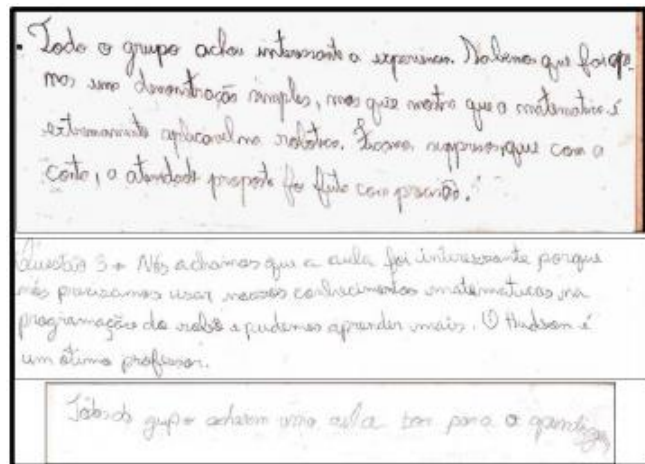 . Todo o grupo achou interessante a experiencia. Sabemos que foi ape-
nas uma demonstração simples, mas que mostra que a matematica é
extremamente aplicavel na robotica. Ficamos supresos que com a
conta, a atividade proposta foi feita com precisão.
Questão 3 → Nós achamos que a aula foi interessante porque
nós precisamos usar nossos conhecimentos matematicos na
programação do robô e pudemos aprender mais. O Hudson é
um ótimo professor.
Todos do grupo acharam uma aula boa para o